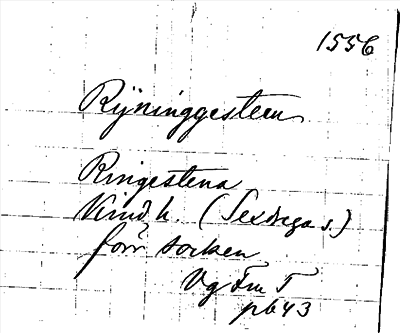 1556
Rijninggesteen
Ringestena
Kind h. (Sexdrega s.)
förr socken
Vg Fm T
p 643